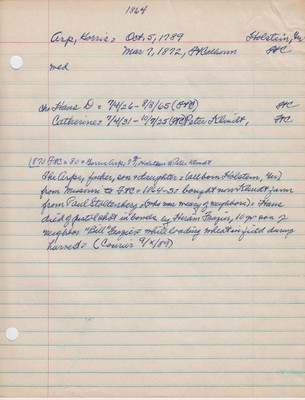 1864
Arp, Goris = Oct, 5, 1789 Holstein, Ger
Mar 7, 1872, AC
med
ch = Hans D = 7/4/26 - 8/8/65 (AC) AC
Catherine = 7/4/31 - 11/9/25 (AC) Peter Klindt, AC
(1870 = 80 = Goris Arp, Holstein = Peter Klindt
The Arps, father, son & daughter = (all born Holstein, Ger)
from Missouri to = 1864-5= bought now Klindt farm
from Paul Stoltenberg (who was weary of neighbors) = Hans
died of pistol shot in bowels by Hiram Frazier, 10 yr son of
neighbor "Bill" Frazier = while loading wheat in field during
harvest = (Courier